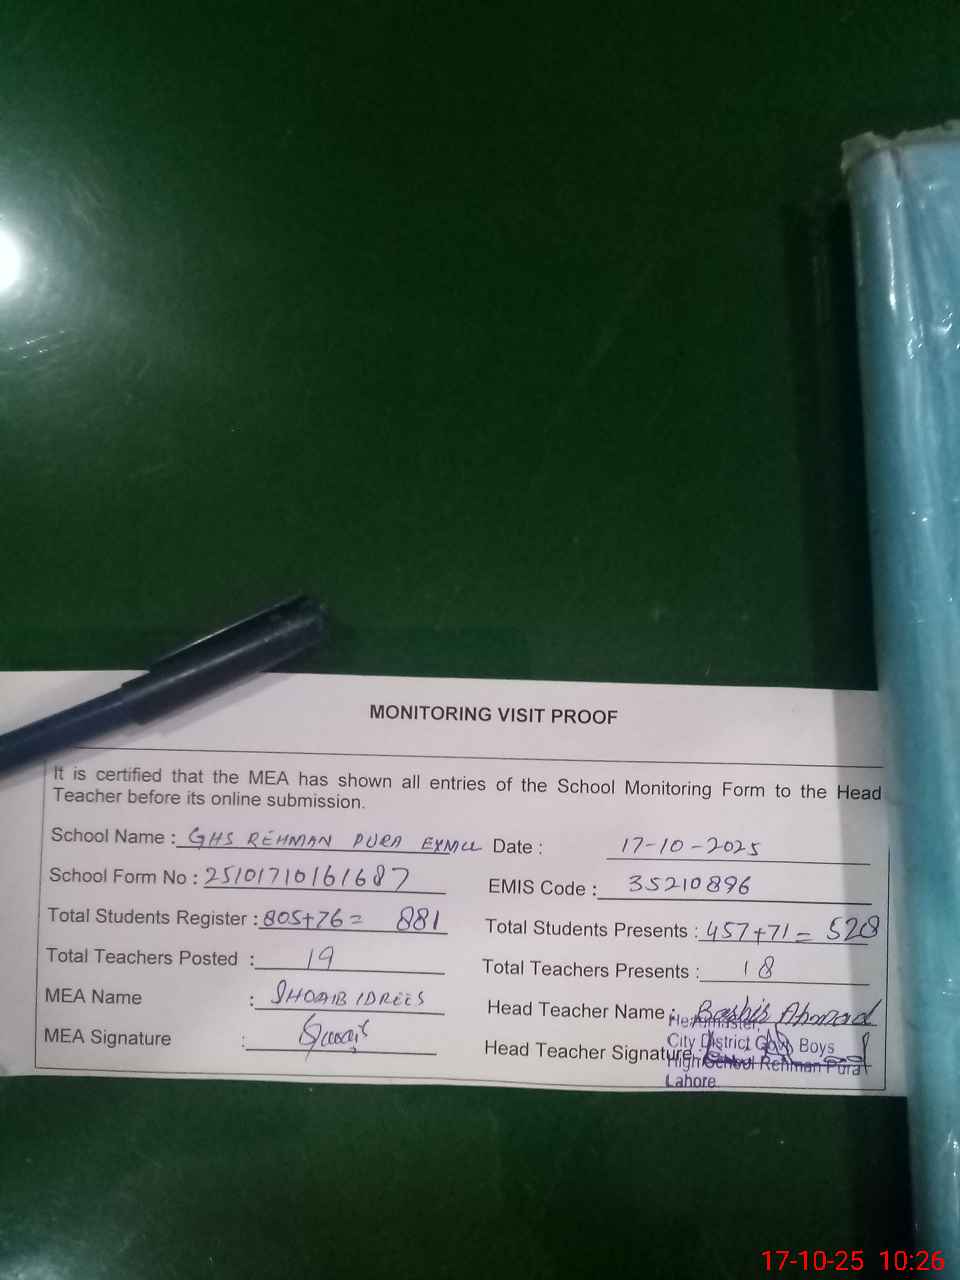 MONITORING VISIT PROOF
It is certified that the MEA has shown all entries of the School Monitoring Form to the Head
Teacher before its online submission.
School Name : GHS REHMAN PURA Date : 17-10-2025
School Form No : 25101710161687 EMIS Code : 35210896
Total Students Register : 805+76= 881 Total Students Presents : 457+71= 528
Total Teachers Posted : 19 Total Teachers Presents : 18
MEA Name : SHOAIB IDREES Head Teacher Name : Bashir Ahmad
MEA Signature : Head Teacher Signature:
Headmaster
City District Govt Boys
High School Rehman Pura
Lahore.
17-10-25 10:26